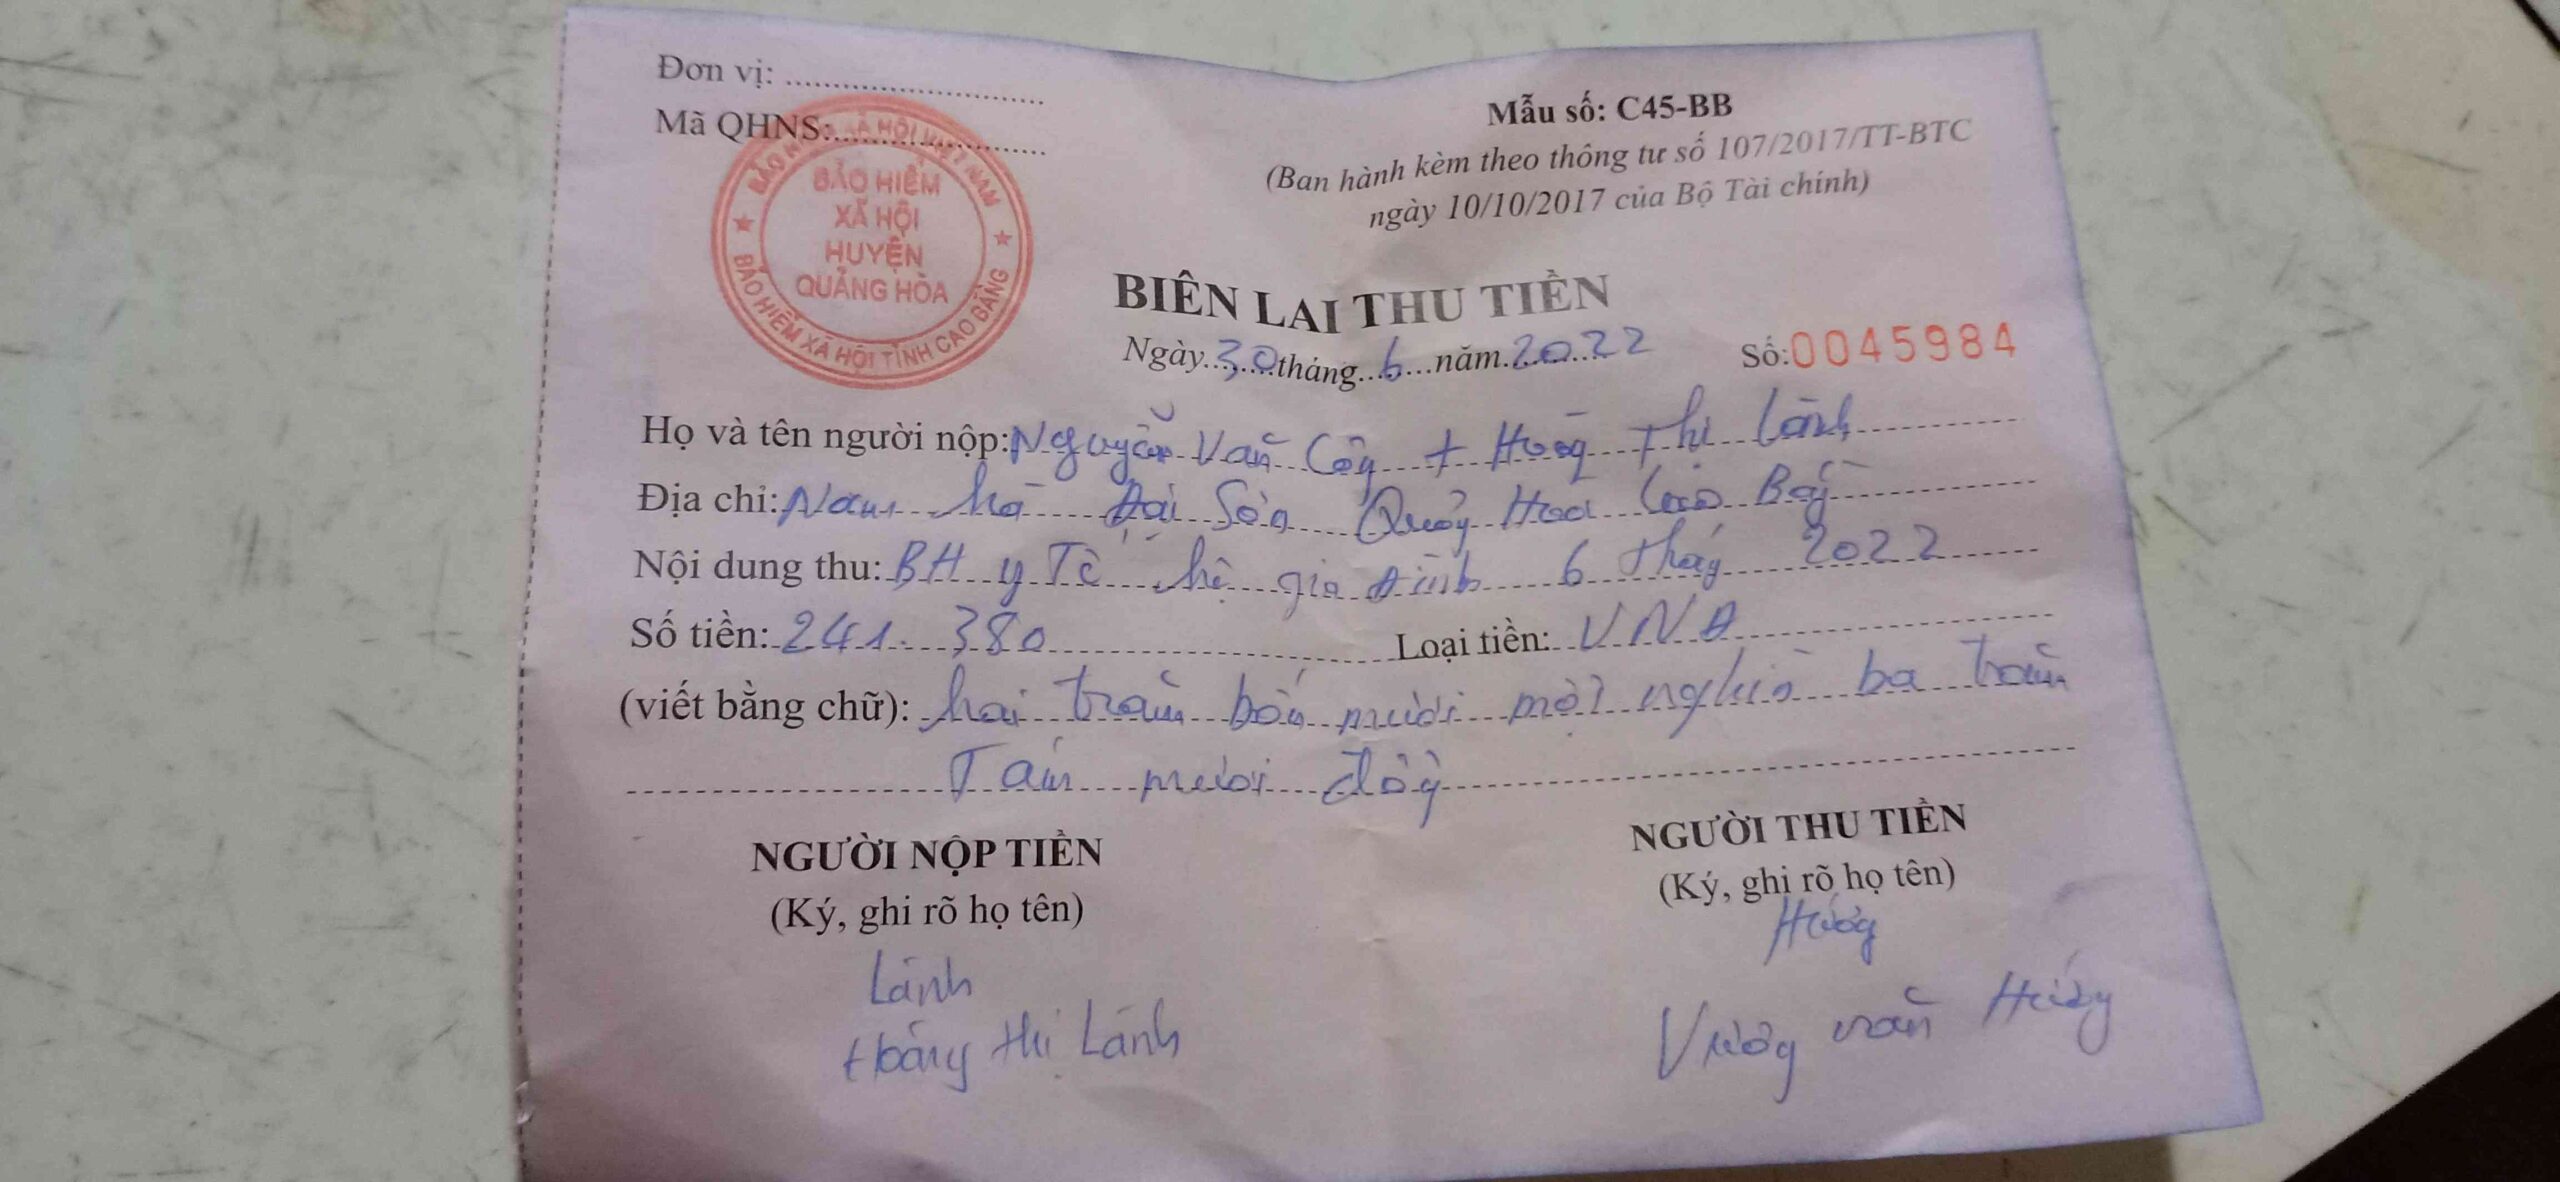 Đơn vị:
Mã QHNS:
BẢO HIỂM XÃ HỘI VIỆT NAM
BẢO HIỂM
XÃ HỘI
HUYỆN
QUẢNG HÒA
BẢO HIỂM XÃ HỘI TỈNH CAO BẰNG
Mẫu số: C45-BB
(Ban hành kèm theo thông tư số 107/2017/TT-BTC
ngày 10/10/2017 của Bộ Tài chính)
BIÊN LAI THU TIỀN
Ngày 30 tháng 6 năm 2022
Số: 0045984
Họ và tên người nộp: Nguyễn Văn + Thị Lành
Địa chỉ: Nam Đại Sơn
Nội dung thu: BH y Tế hộ gia đình 6 tháng 2022
Số tiền: 241.380 Loại tiền: VNĐ
(viết bằng chữ): hai trăm bốn mươi một nghìn ba trăm
Tám mươi đồng
NGƯỜI NỘP TIỀN
(Ký, ghi rõ họ tên)
Lánh
Hoàng thị Lánh
NGƯỜI THU TIỀN
(Ký, ghi rõ họ tên)
văn